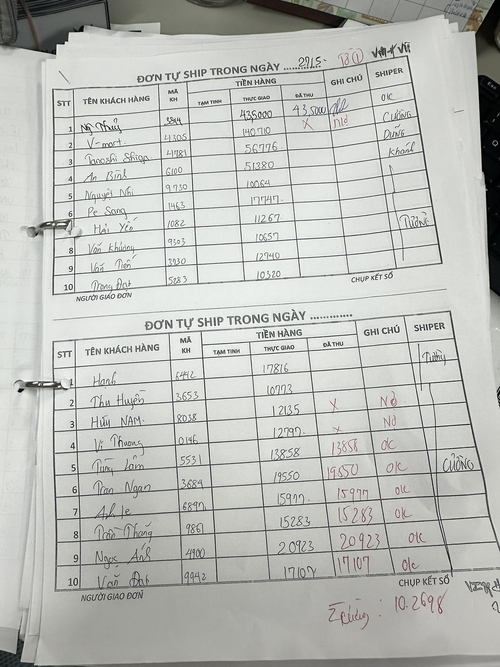 ĐƠN TỰ SHIP TRONG NGÀY ............ 27/5
STT TÊN KHÁCH HÀNG MÃ KH TIỀN HÀNG GHI CHÚ SHIPER
TẠM TINH THỰC GIAO ĐÃ THU
1 Ng Thuỷ 3944 435000 435000 OK
2 V-mart 4305 140.710 X Nợ CƯỜNG
3 4781 56776 DŨNG
4 An Bình 6100 51380 Khánh
5 Nguyệt Nhi 9730 10064
6 Pe Sang 1463 17747
7 Hải Yến 1082 11267 TƯỜNG
8 Văn Khương 9303 10657
9 Văn Tiến 3730 12940
10 Trọng Đạt 5283 10320
NGƯỜI GIAO ĐƠN CHỤP KẾT SỐ
ĐƠN TỰ SHIP TRONG NGÀY .............
STT TÊN KHÁCH HÀNG MÃ KH TIỀN HÀNG GHI CHÚ SHIPER
TẠM TINH THỰC GIAO ĐÃ THU
1 Hanh 6442 17816 Tường
2 Thu Huyền 3653 10773
3 Hữu NAM. 8038 12135 X Nợ
4 Vi Thương 0146 12797 X Nợ
5 Tùng Lâm 5531 13858 13858 OK
6 Trần Ngan 3684 19550 19550 OK CƯỜNG
7 Anh Le 6897 15977 15977 OK
8 Trần Thắng 9861 15283 15283 OK
9 Ngọc Ánh 4900 20923 20923 OK
10 Văn Đạt 9942 17107 17107 OK
NGƯỜI GIAO ĐƠN CHỤP KẾT SỐ
: 10.2698